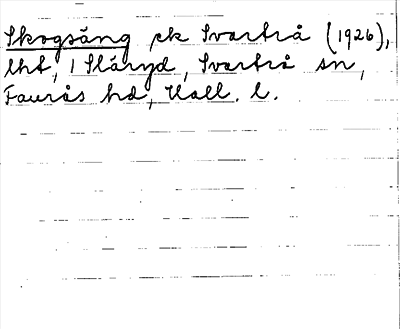 Skogsäng pk Svartrå (1926),
lht, i Släryd, Svartrå sn,
Faurås hd, Hall. l.